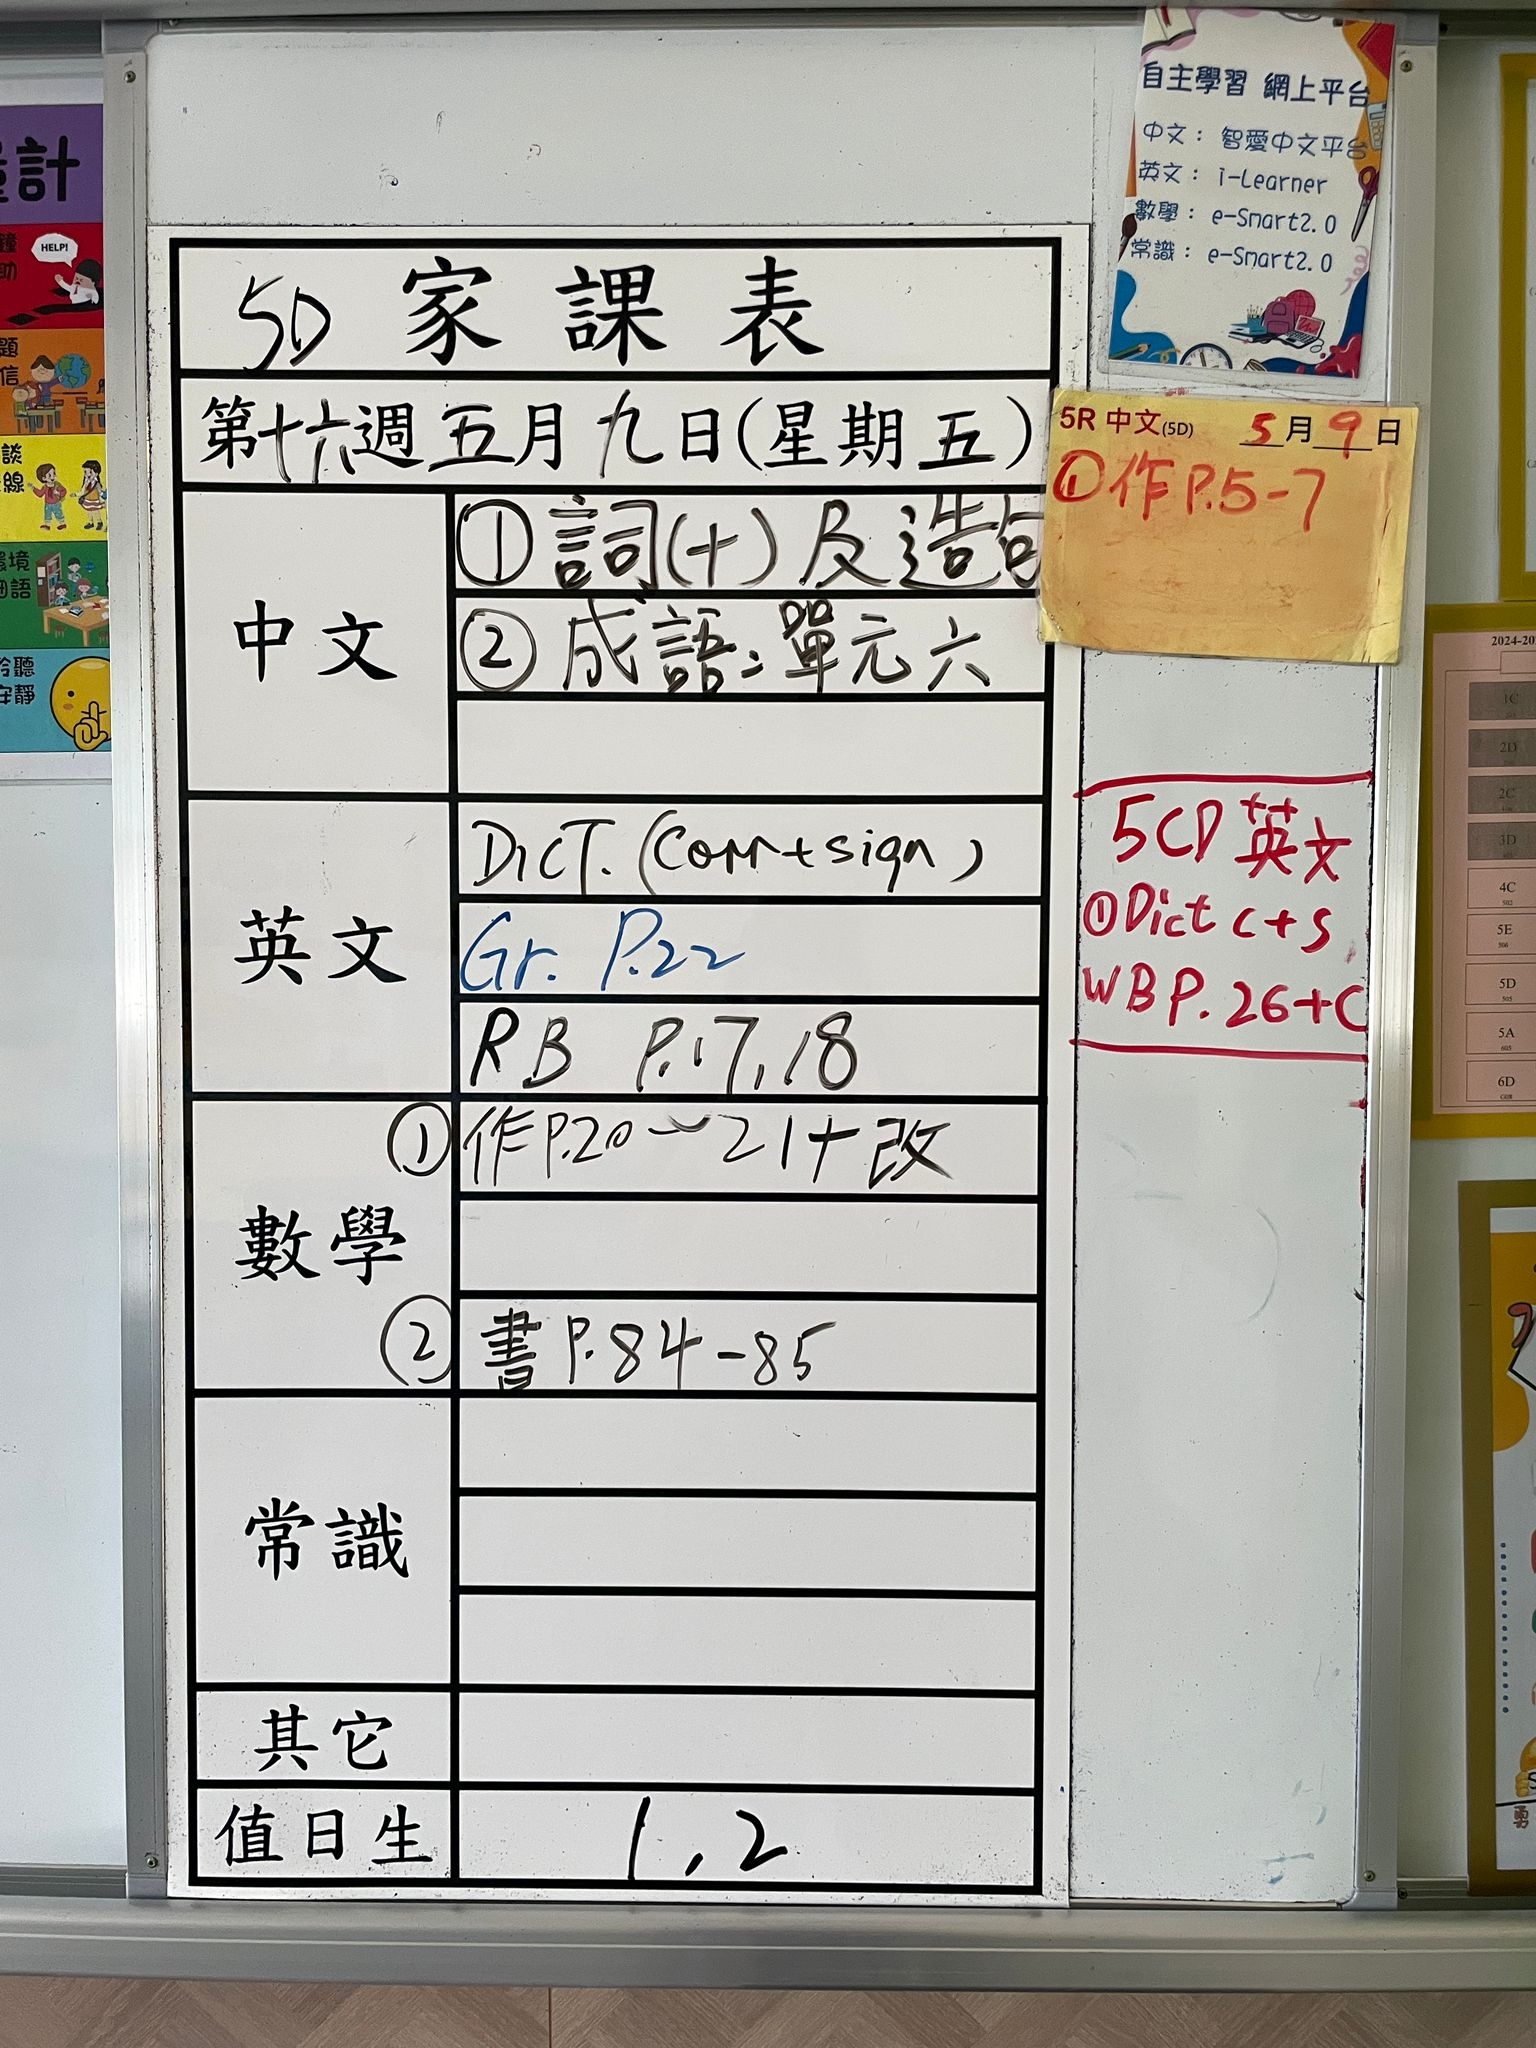 5D 家課表
第十六週五月九日(星期五)
中文
① 詞(十)及造句
② 成語:單元六
英文
DICT. (Corr+sign)
Gr. P.22
RB P.17,18
數學
① 作P.20~21+改
② 書P.84-85
常識
其它
值日生
1,2
自主學習 網上平台
中文: 智愛中文平台
英文: i-Learner
數學: e-Smart2.0
常識: e-Smart2.0
5R 中文(5D) 5月9日
① 作P.5-7
5CD 英文
① Dict C+S
WB P.26+C
計
HELP!
助
題
信
談
線
環境
細語
聆聽
安靜
2024-20
1C
2D
2C
3D
4C
502
5E
506
5D
505
5A
605
6D
勇